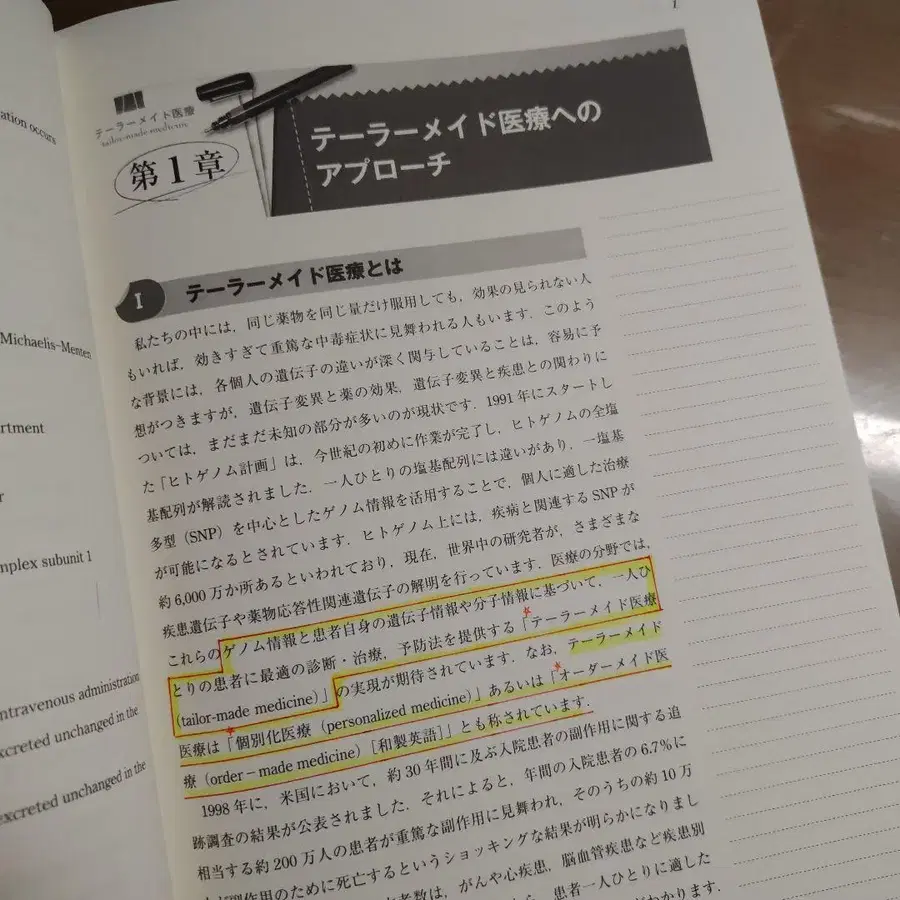 ation occurs
Michaelis-Menten
rtment
r
mplex subunit 1
ntravenous administration
excreted unchanged in the
excreted unchanged in the
1
テーラーメイド医療
tailor-made medicine
第1章
テーラーメイド医療への
アプローチ
I テーラーメイド医療とは
私たちの中には，同じ薬物を同じ量だけ服用しても，効果の見られない人
もいれば，効きすぎて重篤な中毒症状に見舞われる人もいます．このよう
な背景には，各個人の遺伝子の違いが深く関与していることは，容易に予
想がつきますが，遺伝子変異と薬の効果，遺伝子変異と疾患との関わりに
ついては，まだまだ未知の部分が多いのが現状です．1991年にスタートし
た「ヒトゲノム計画」は，今世紀の初めに作業が完了し，ヒトゲノムの全塩
基配列が解読されました．一人ひとりの塩基配列には違いがあり，一塩基
多型（SNP）を中心としたゲノム情報を活用することで，個人に適した治療
が可能になるとされています．ヒトゲノム上には，疾病と関連するSNPが
約6,000万か所あるといわれており，現在，世界中の研究者が，さまざまな
疾患遺伝子や薬物応答性関連遺伝子の解明を行っています．医療の分野では，
これらのゲノム情報と患者自身の遺伝子情報や分子情報に基づいて，一人ひ
とりの患者に最適の診断・治療，予防法を提供する「テーラーメイド医療
(tailor-made medicine)」の実現が期待されています．なお，テーラーメイド
医療は「個別化医療（personalized medicine）」あるいは「オーダーメイド医
療（order－made medicine）［和製英語］」とも称されています．
1998年に，米国において，約30年間に及ぶ入院患者の副作用に関する追
跡調査の結果が公表されました．それによると，年間の入院患者の6.7％に
相当する約200万人の患者が重篤な副作用に見舞われ，そのうちの約10万
副作用のために死亡するというショッキングな結果が明らかになりまし
者数は，がんや心疾患，脳血管疾患など疾患別
患者一人ひとりに適した
わかります．